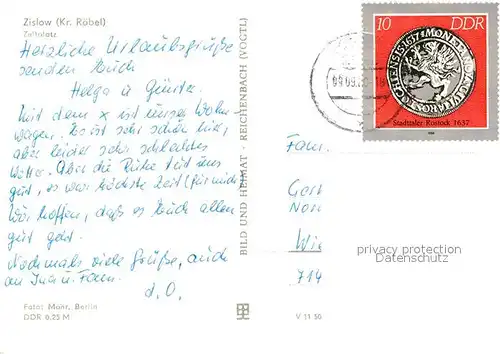 Zislow (Kr. Röbel)
Zeltplatz
Herzliche Urlaubsgrüße
senden Euch
Helga u. Günter.
Mit dem x ist unser Wohn-
wagen. Es ist sehr schön hier,
aber leider sehr schlechtes
Wetter. Aber die Ruhe tut uns
gut, es war höchste Zeit (für mich)
Wir hoffen, daß es Euch allen
gut geht.
Nochmals viele Grüße, auch
an Ina u. Fam.
d. O.
Foto: Mohr, Berlin
DDR 0,25 M
BILD UND HEIMAT · REICHENBACH (VOGTL)
V 11 50
10 DDR
Stadttaler Rostock 1637
Fam.
Wie
714
privacy protection